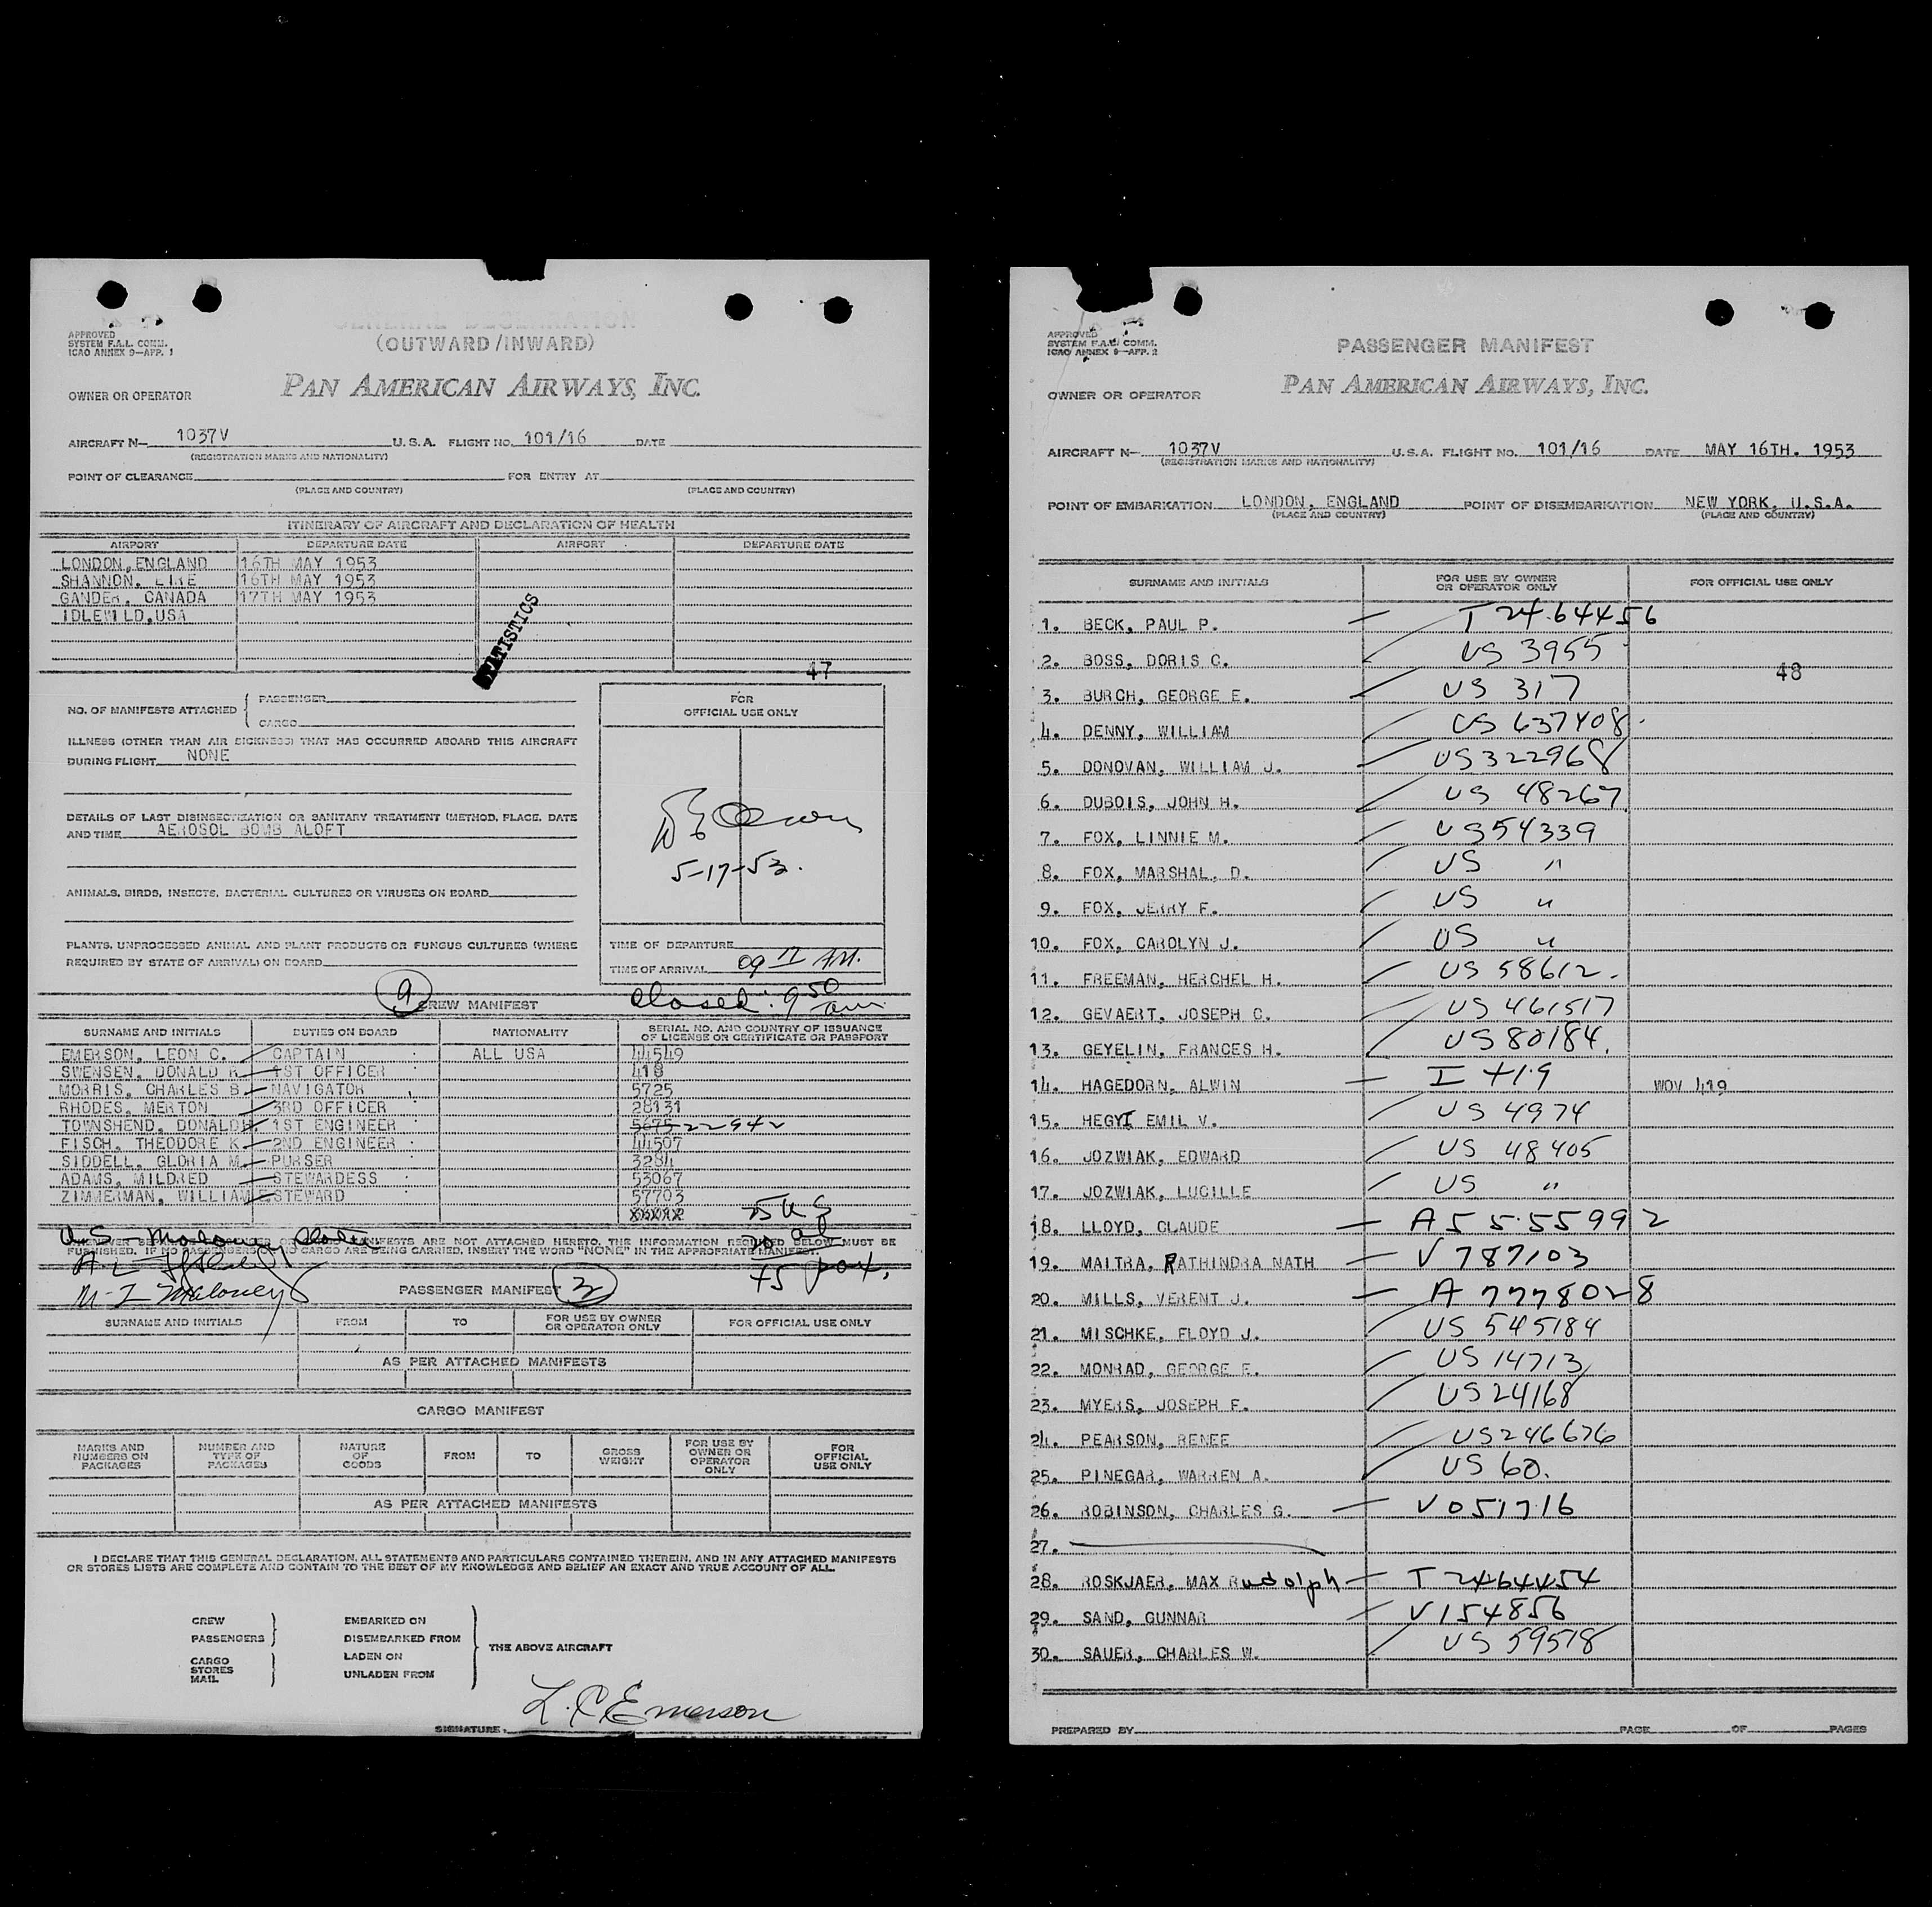 APPROVED
SYSTEM F.A.L. COMM.
ICAO ANNEX 9—APP. 1
(OUTWARD/INWARD)
OWNER OR OPERATOR
PAN AMERICAN AIRWAYS, INC.
AIRCRAFT N— 1037V U.S.A. FLIGHT NO. 101/16 DATE
(REGISTRATION MARKS AND NATIONALITY)
POINT OF CLEARANCE FOR ENTRY AT
(PLACE AND COUNTRY) (PLACE AND COUNTRY)
ITINERARY OF AIRCRAFT AND DECLARATION OF HEALTH
AIRPORT DEPARTURE DATE AIRPORT DEPARTURE DATE
LONDON, ENGLAND 16TH MAY 1953
SHANNON, EIRE 16TH MAY 1953
GANDER, CANADA 17TH MAY 1953
IDLEWILD, USA
47
NO. OF MANIFESTS ATTACHED PASSENGER
CARGO
FOR
OFFICIAL USE ONLY
ILLNESS (OTHER THAN AIR SICKNESS) THAT HAS OCCURRED ABOARD THIS AIRCRAFT
DURING FLIGHT NONE
DETAILS OF LAST DISINSECTIZATION OR SANITARY TREATMENT (METHOD, PLACE, DATE
AND TIME AEROSOL BOMB ALOFT
5-17-53.
ANIMALS, BIRDS, INSECTS, BACTERIAL CULTURES OR VIRUSES ON BOARD
PLANTS, UNPROCESSED ANIMAL AND PLANT PRODUCTS OR FUNGUS CULTURES (WHERE
REQUIRED BY STATE OF ARRIVAL) ON BOARD
TIME OF DEPARTURE
TIME OF ARRIVAL 09 17 AM.
9 CREW MANIFEST
Closed: 9 50 am
SURNAME AND INITIALS DUTIES ON BOARD NATIONALITY SERIAL NO. AND COUNTRY OF ISSUANCE
OF LICENSE OR CERTIFICATE OR PASSPORT
EMERSON, LEON C. CAPTAIN ALL USA 44549
SWENSEN, DONALD R 1ST OFFICER 418
MORRIS, CHARLES B NAVIGATOR 5725
RHODES, MERTON 3RD OFFICER 28131
TOWNSHEND, DONALD 1ST ENGINEER 5675 22942
FISCH, THEODORE K 2ND ENGINEER 44507
SIDDELL, GLORIA M. PURSER 3284
ADAMS, MILDRED STEWARDESS 53067
ZIMMERMAN, WILLIAM STEWARD 57703
25 US
20 al
45 pax.
MANIFESTS ARE NOT ATTACHED HERETO, THE INFORMATION REQUIRED BELOW MUST BE
FURNISHED. IF NO PASSENGERS OR CARGO ARE BEING CARRIED, INSERT THE WORD "NONE" IN THE APPROPRIATE MANIFEST.
PASSENGER MANIFEST
SURNAME AND INITIALS FROM TO FOR USE BY OWNER
OR OPERATOR ONLY FOR OFFICIAL USE ONLY
AS PER ATTACHED MANIFESTS
CARGO MANIFEST
MARKS AND
NUMBERS ON
PACKAGES NUMBER AND
TYPE OF
PACKAGES NATURE
OF
GOODS FROM TO GROSS
WEIGHT FOR USE BY
OWNER OR
OPERATOR
ONLY FOR
OFFICIAL
USE ONLY
AS PER ATTACHED MANIFESTS
I DECLARE THAT THIS GENERAL DECLARATION, ALL STATEMENTS AND PARTICULARS CONTAINED THEREIN, AND IN ANY ATTACHED MANIFESTS
OR STORES LISTS ARE COMPLETE AND CONTAIN TO THE BEST OF MY KNOWLEDGE AND BELIEF AN EXACT AND TRUE ACCOUNT OF ALL.
CREW EMBARKED ON
PASSENGERS DISEMBARKED FROM
THE ABOVE AIRCRAFT
CARGO LADEN ON
STORES
MAIL UNLADEN FROM
SIGNATURE: L. C. Emerson
APPROVED
SYSTEM F.A.L. COMM.
ICAO ANNEX 9—APP. 2
PASSENGER MANIFEST
OWNER OR OPERATOR
PAN AMERICAN AIRWAYS, INC.
AIRCRAFT N— 1037V U.S.A. FLIGHT NO. 101/16 DATE MAY 16TH. 1953
(REGISTRATION MARKS AND NATIONALITY)
POINT OF EMBARKATION LONDON, ENGLAND POINT OF DISEMBARKATION NEW YORK, U.S.A.
(PLACE AND COUNTRY) (PLACE AND COUNTRY)
SURNAME AND INITIALS FOR USE BY OWNER
OR OPERATOR ONLY FOR OFFICIAL USE ONLY
1. BECK, PAUL P. T 2464456
2. BOSS, DORIS C. US 3955
48
3. BURCH, GEORGE E. US 317
4. DENNY, WILLIAM US 637408
5. DONOVAN, WILLIAM J. US 322968
6. DUBOIS, JOHN H. US 48267
7. FOX, LINNIE M. US 54339
8. FOX, MARSHAL, D. US "
9. FOX, JERRY F. US "
10. FOX, CAROLYN J. US "
11. FREEMAN, HERCHEL H. US 58612.
12. GEVAERT, JOSEPH C. US 461517
13. GEYELIN, FRANCES H. US 80184.
14. HAGEDORN, ALWIN I 419 WOV 419
15. HEGYI EMIL V. US 4974
16. JOZWIAK, EDWARD US 48405
17. JOZWIAK, LUCILLE US "
18. LLOYD, CLAUDE A 5555992
19. MAITRA, RATHINDRA NATH V 787103
20. MILLS, VERENT J. A 7778028
21. MISCHKE, FLOYD J. US 545184
22. MONRAD, GEORGE E. US 14713
23. MYERS, JOSEPH F. US 24168
24. PEARSON, RENEE US 246676
25. PINEGAR, WARREN A. US 60.
26. ROBINSON, CHARLES G. V 051716
27.
28. ROSKJAER, MAX Rudolph T 2464454
29. SAND, GUNNAR V 154856
30. SAUER, CHARLES W. US 59518
PREPARED BY PAGE OF PAGES